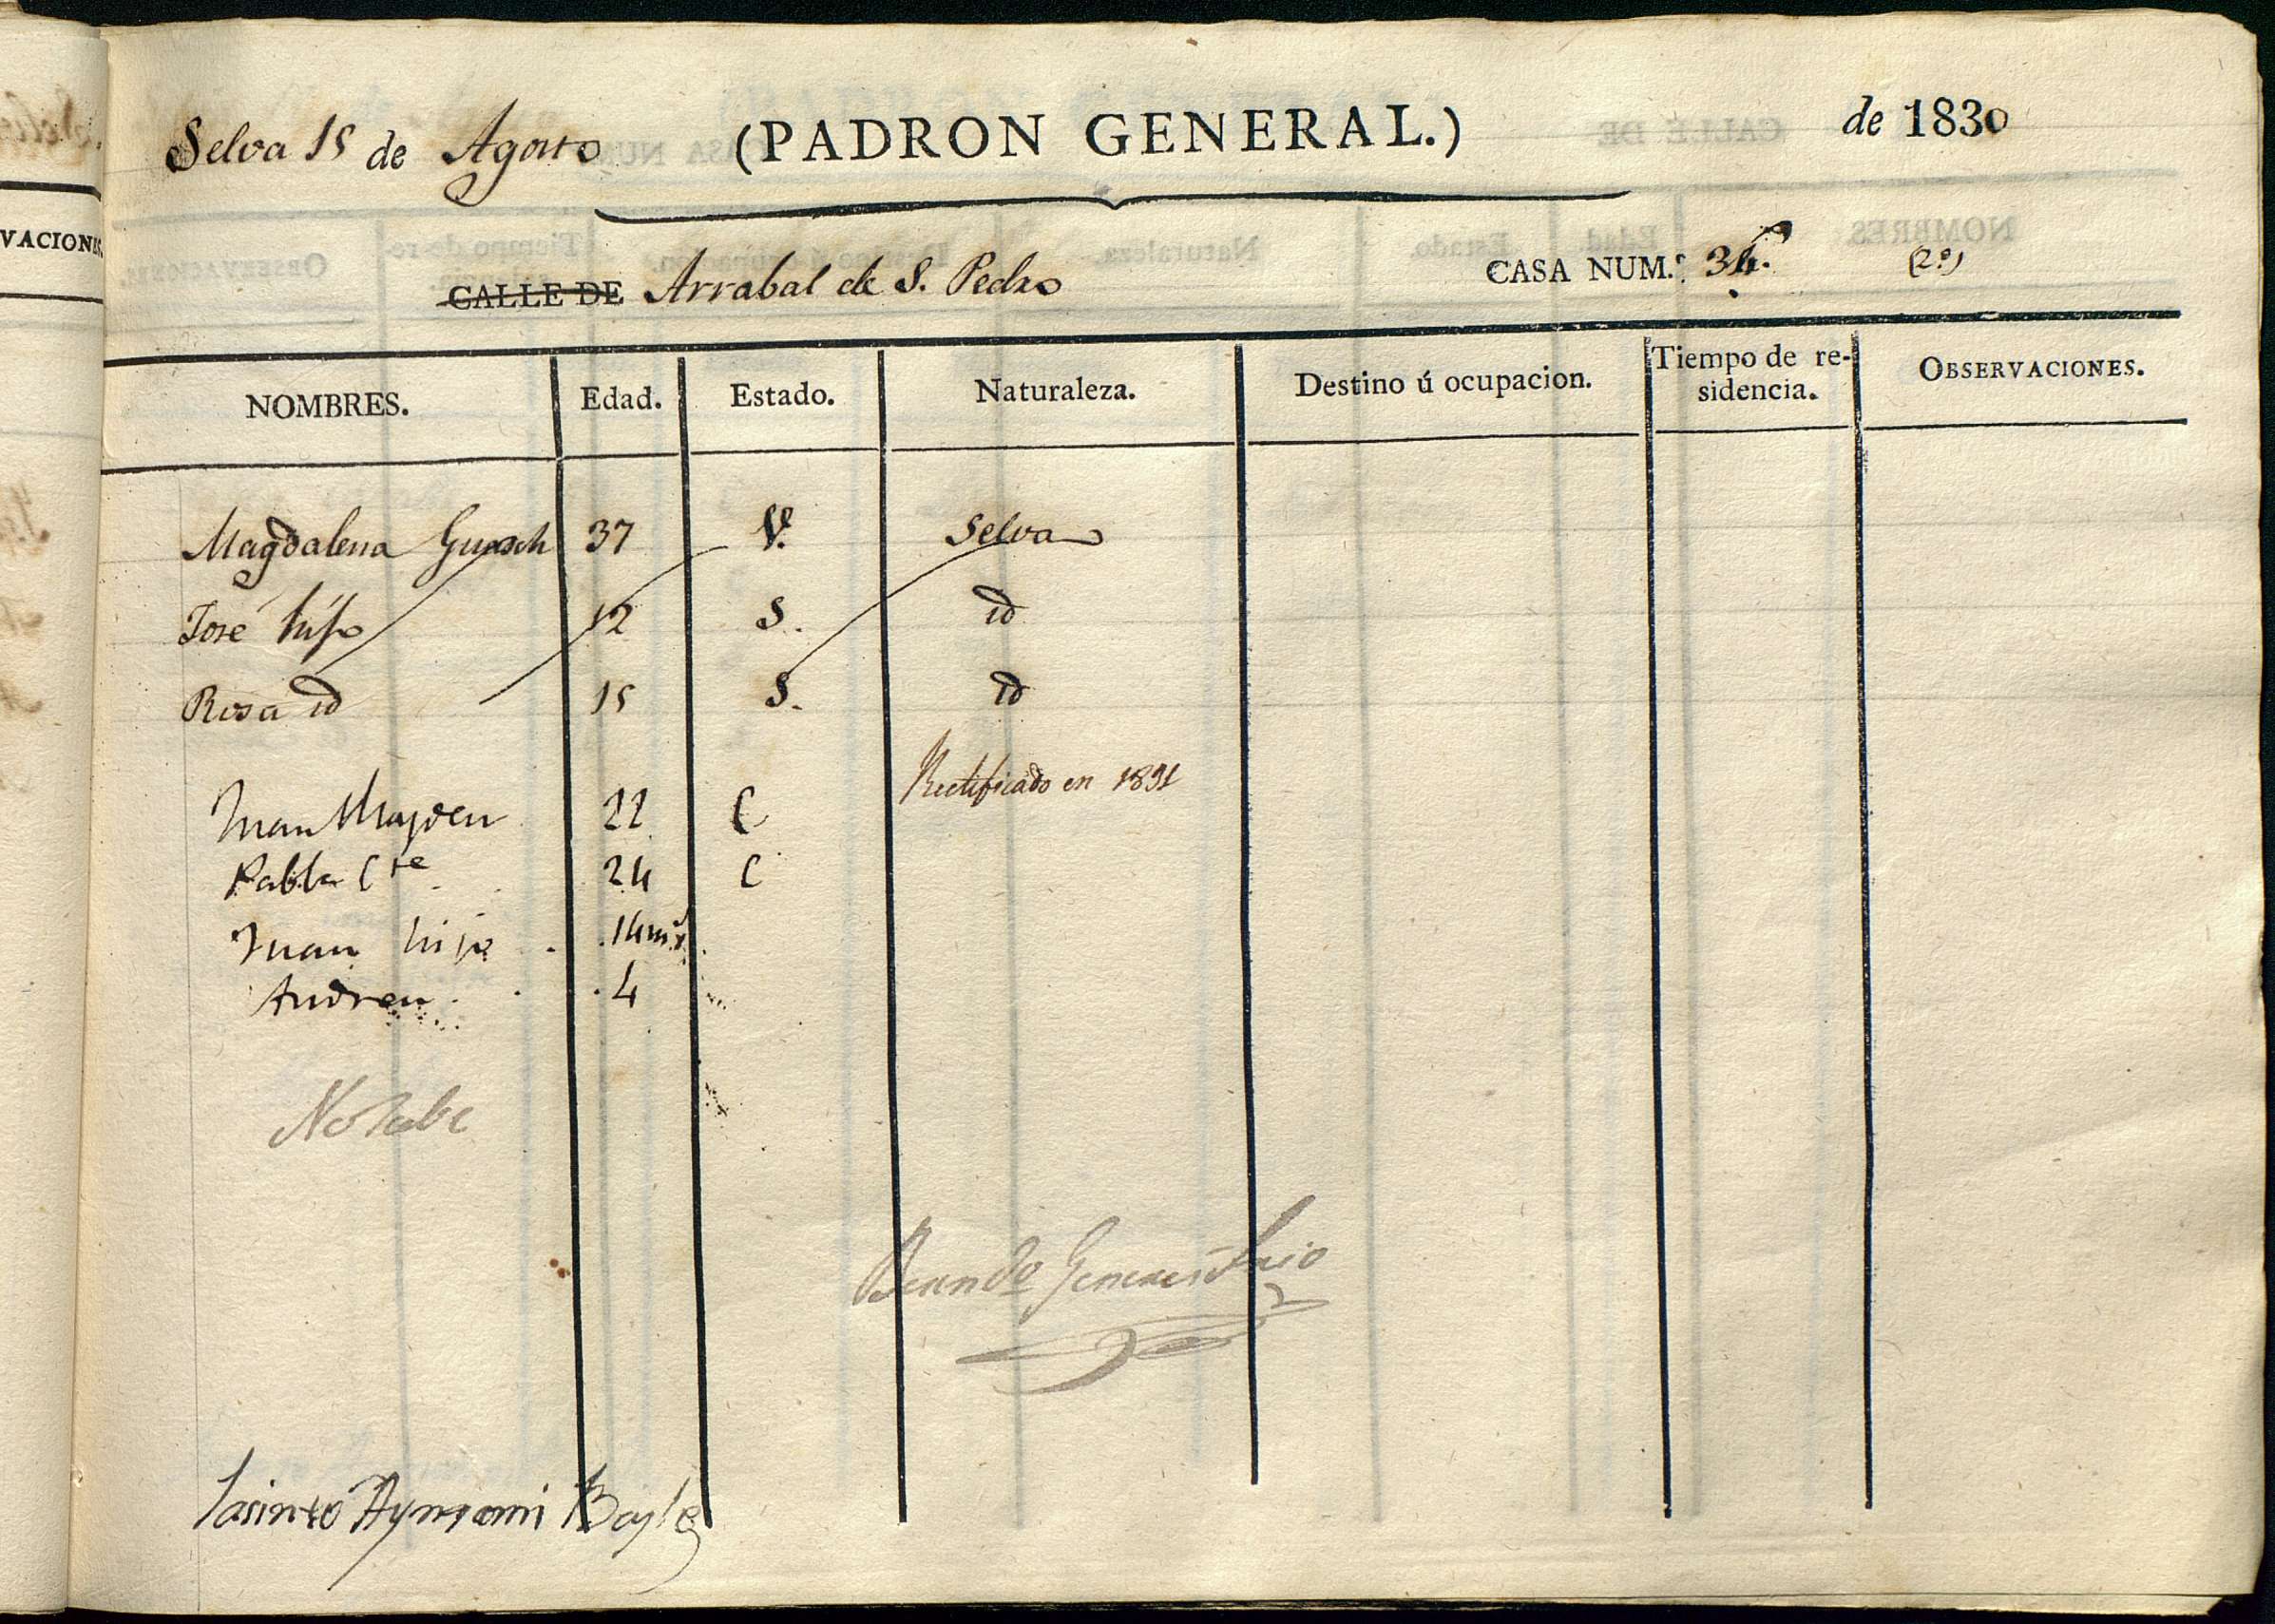 Selva 15 de Agosto (PADRON GENERAL.) de 1830
VACIONES.
CALLE DE Arrabal de S. Pedro CASA NUM.º 34. (2º)
NOMBRES. Edad. Estado. Naturaleza. Destino ú ocupacion. Tiempo de re-
sidencia. OBSERVACIONES.
Magdalena Guasch 37 V. Selva
José hijo 12 S. id
Rosa id 15 S. id
Rectificado en 1831
Juan 22 C
Pabla Cte 24 C
Juan hijo 14 ms
Andreu 4
Jasinto Aymami Bayle